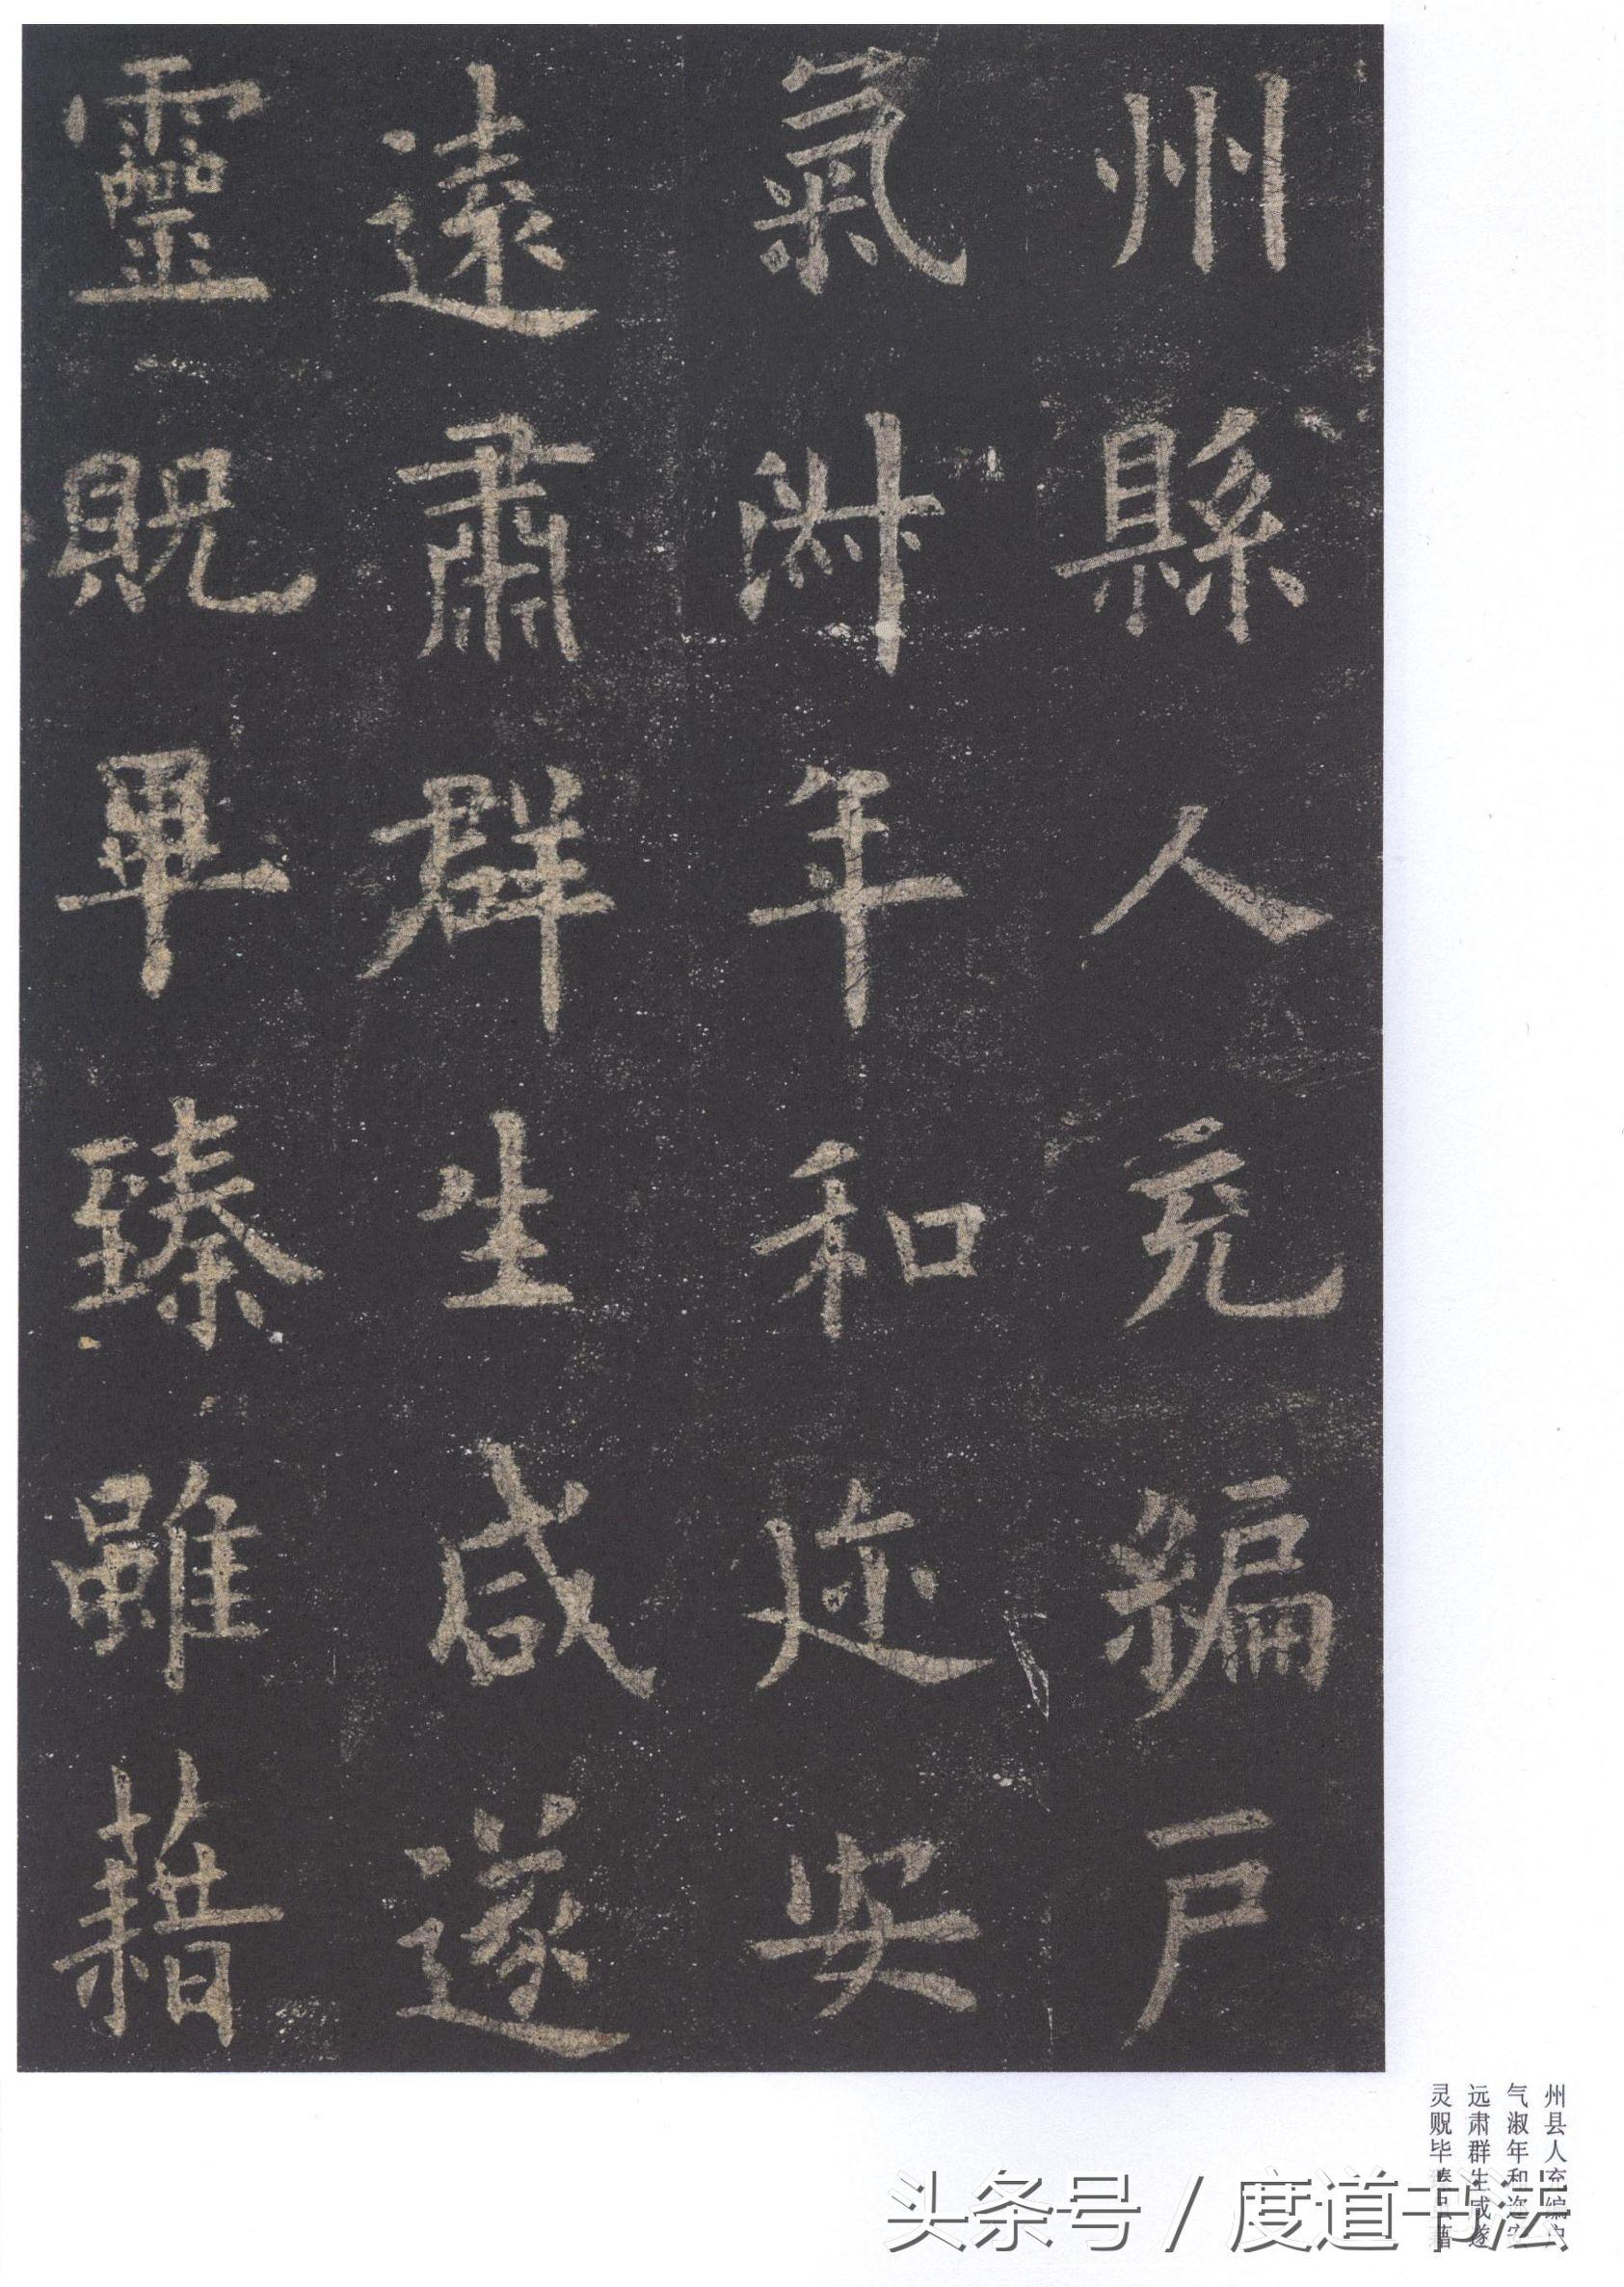 州縣人充編戶
氣淑年和迩安
遠肅群生咸遂
靈貺畢臻雖藉
州县人充编户
气淑年和迩安
远肃群生咸遂
灵贶毕臻虽藉
头条号 / 度道书法